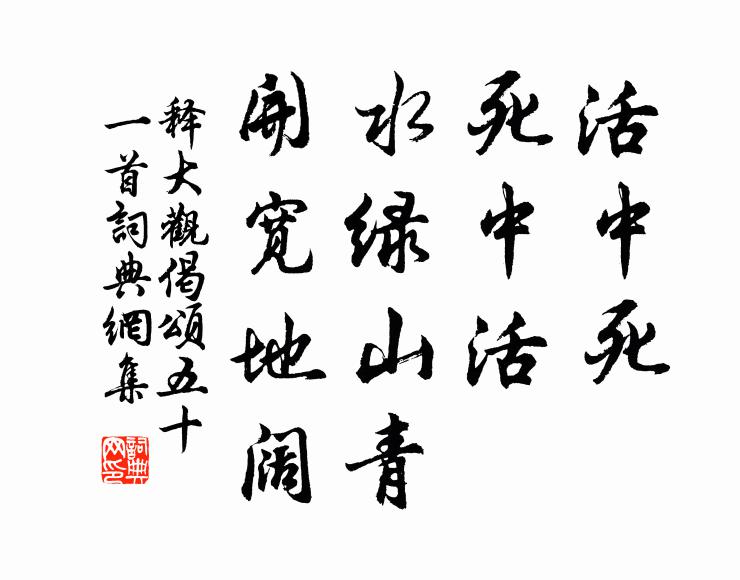 活中死
死中活
水绿山青
開宽地阔
释大觀偈頌五十
一首詞典網集
詞典
网印